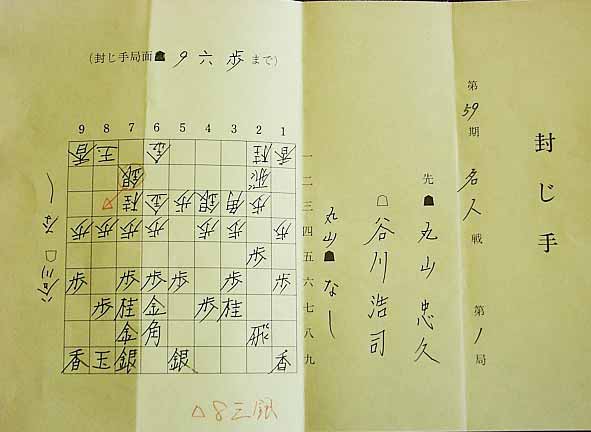 封じ手
第59期 名人戦 第1局
先☗丸山忠久
☖谷川浩司
丸山☗なし
(封じ手局面☗9六歩まで)
9 8 7 6 5 4 3 2 1
香 玉 金 桂 香 一
銀 飛 二
桂 金 歩 銀 角 歩 三
歩 歩 歩 歩 歩 歩 歩 四
歩 五
歩 歩 歩 歩 歩 歩 六
歩 桂 金 歩 桂 七
金 角 飛 八
香 玉 銀 銀 香 九
谷川☖なし
△8三銀